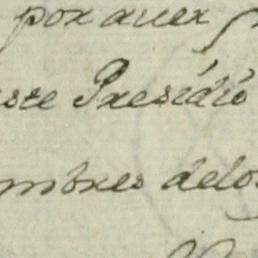 por aver
este Presidio
ombres delos